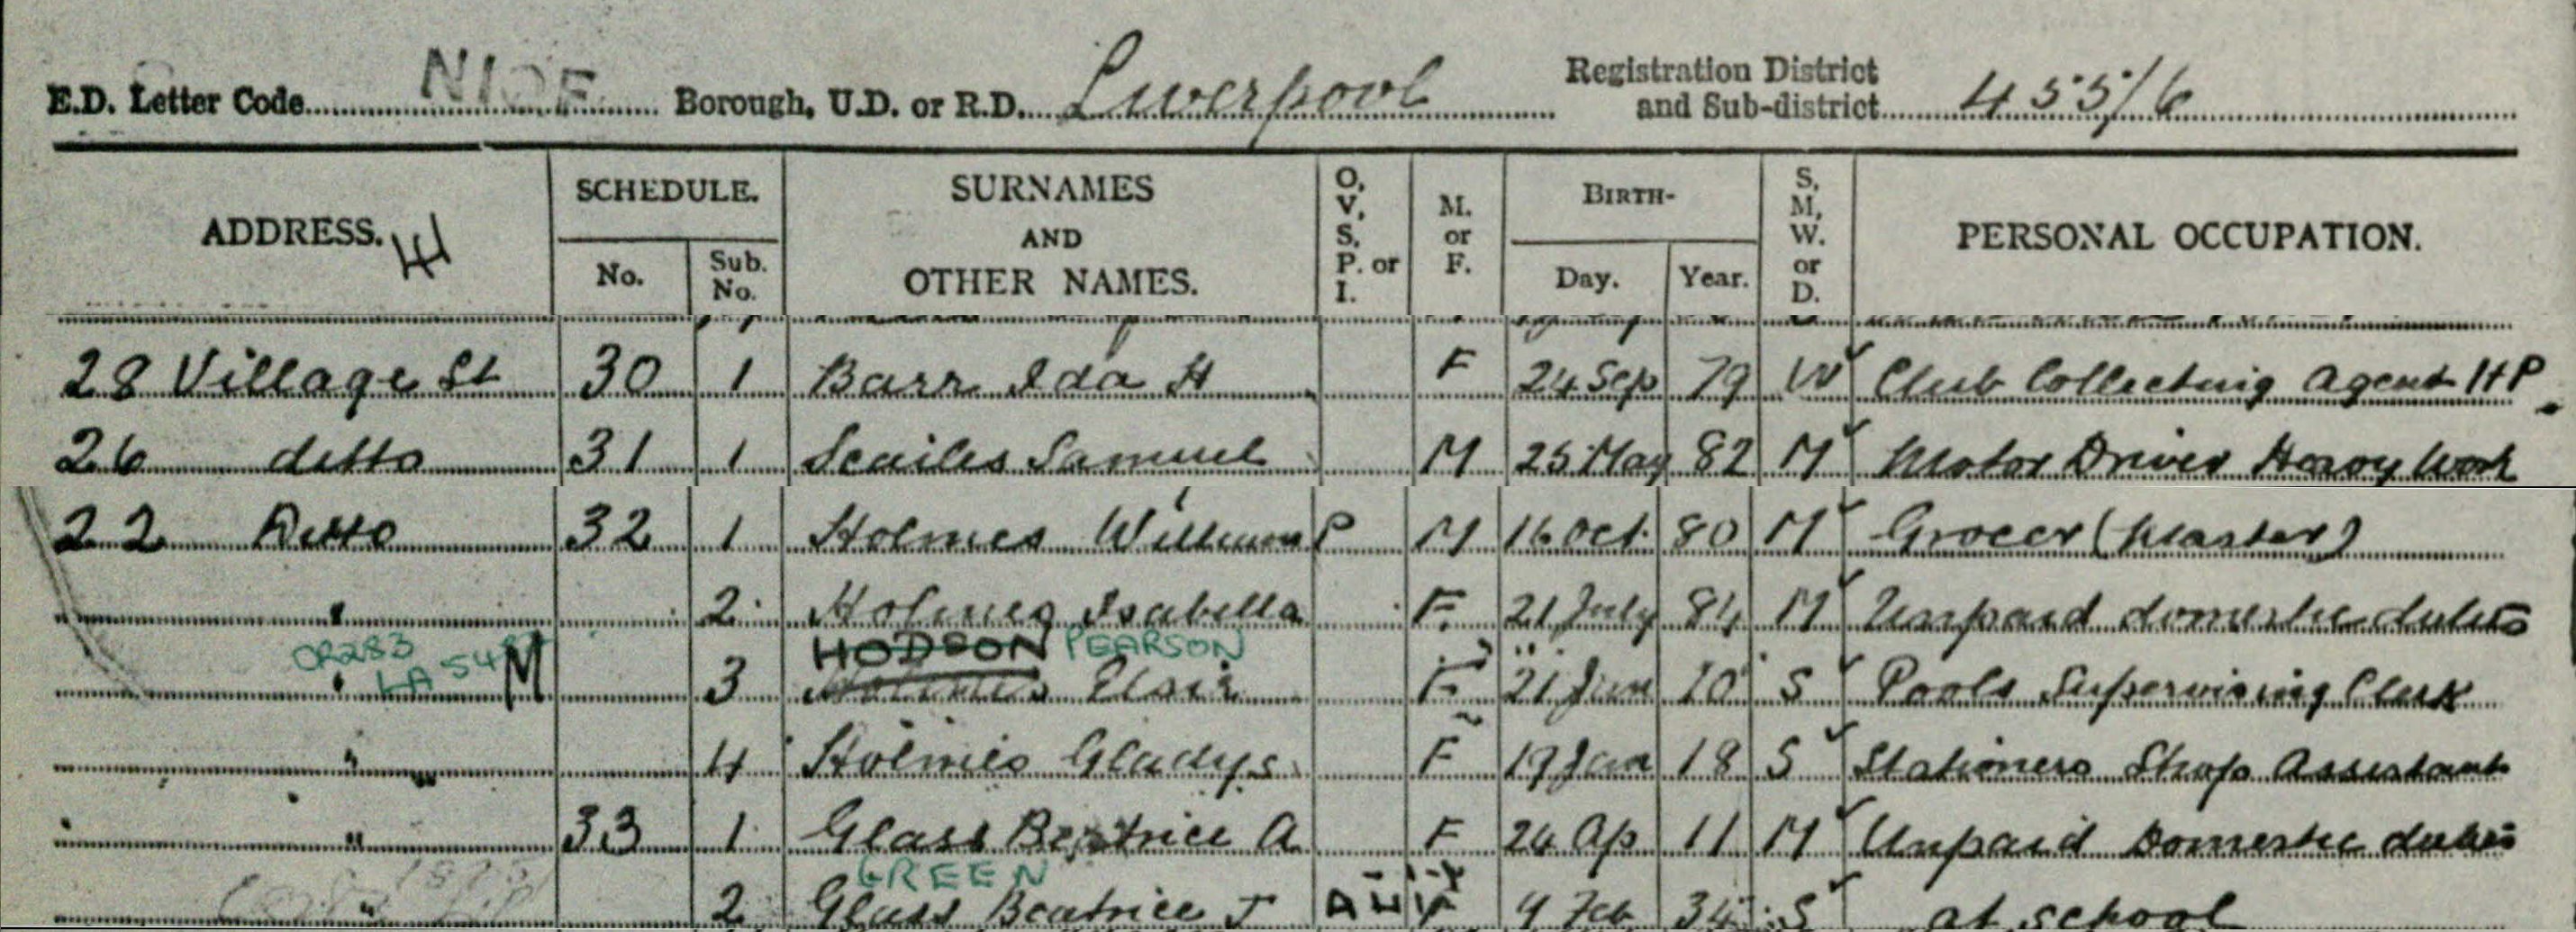 E.D. Letter Code Borough, U.D. or R.D. Liverpool Registration District and Sub-district 455/6
ADDRESS. SCHEDULE. No. Sub. No. SURNAMES AND OTHER NAMES. O, V, S, P. or I. M. or F. BIRTH- Day. Year. S, M, W. or D. PERSONAL OCCUPATION.
28 Village St 30 1 Barr Ida H F 24 Sep 79 W Club Collecting Agent H P
26 ditto 31 1 Scailes Samuel M 25 May 82 M Motor Driver Heavy Work
22 Ditto 32 1 Holmes William P M 16 Oct 80 M Grocer (Master)
" 2 Holmes Isabella F 21 July 84 M Unpaid domestic duties
CR283 HODSON PEARSON
" LA M 3 Holmes Elsie F 21 Jan 10 S Pools Supervising Clerk
" 4 Holmes Gladys F 19 Jan 18 S Stationers Shop Assistant
" 33 1 Glass Beatrice A F 26 Ap 11 M Unpaid Domestic duties
GREEN
" 2 Glass Beatrice J F 9 Feb 34 S at school